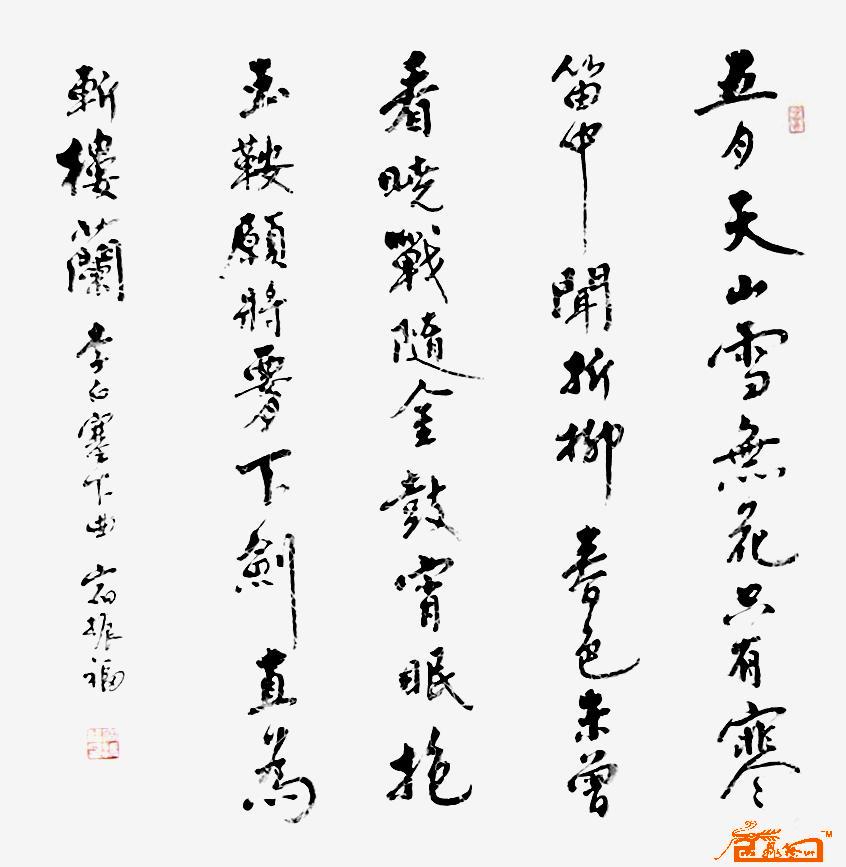 五月天山雪無花只有寒
笛中聞折柳春色未曾
看曉戰隨金鼓宵眠抱
玉鞍願將腰下劍直為
斬樓蘭 李白塞下曲 宿振福